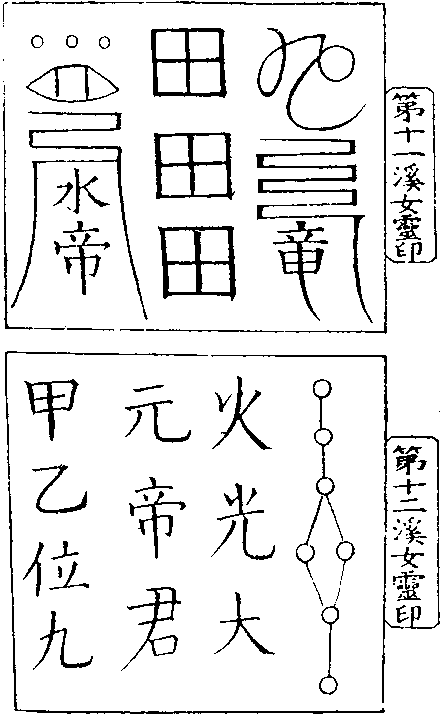 第十一溪女靈印
竜
田田田
水帝
第十二溪女靈印
火光大
元帝君
甲乙位九